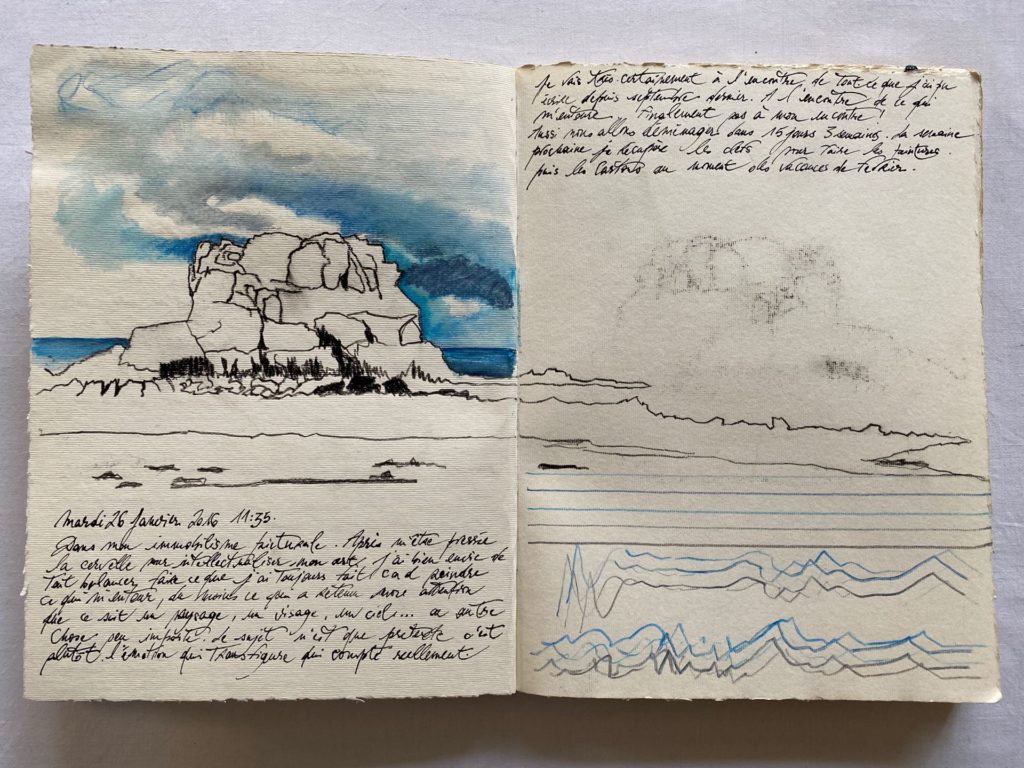 mardi 26 Janvier 2016 11:35.
Dans mon immobilisme picturale. Après m'être pressée
la cervelle pour intellectualiser mon art, j'ai bien envie de
tout balancer, faire ce que j'ai toujours fait c.a.d peindre
ce qui m'entour, du moins ce qui a retenu mon attention
que ce soit un paysage, un visage, un ciel... ou autre
chose peu importe. le sujet n'est que pretexte c'est
plutot l'émotion qui transfigure qui compte réellement
Je vais très certainement à l'encontre de tout ce que j'ai pu
écrire depuis septembre dernier. A l'encontre de ce qui
m'entoure. Finalement pas à mon encontre!
Aussi nous allons déménager dans 15 jours 3 semaines. La semaine
prochaine je récupère les clés pour faire les peintures.
puis les cartons au moment des vacances de Février.